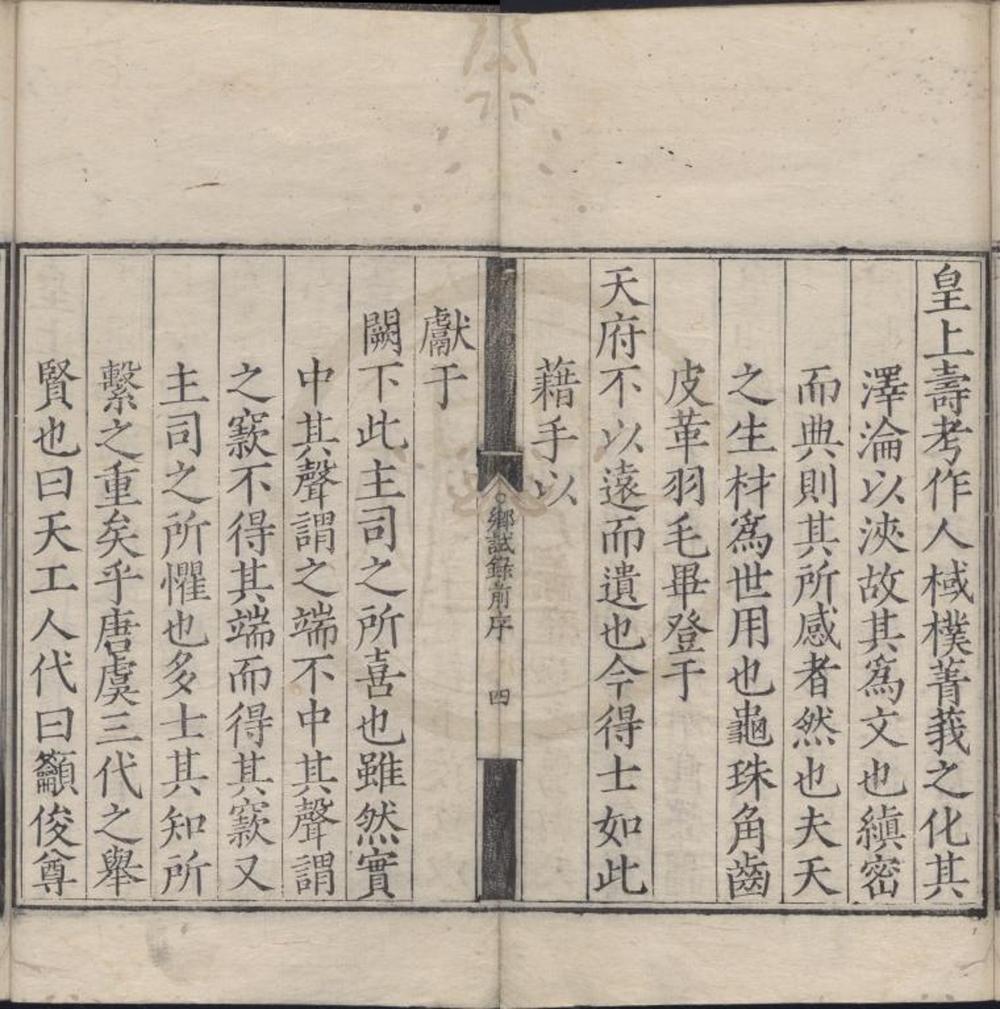 皇上壽考作人棫樸菁莪之化其
澤淪以浹故其為文也縝密
而典則其所感者然也夫天
之生材為世用也龜珠角齒
皮革羽毛畢登于
天府不以遠而遺也今得士如此
藉手以
鄉試錄前序 四
獻于
闕下此主司之所喜也雖然實
中其聲謂之端不中其聲謂
之窾不得其端而得其窾又
主司之所懼也多士其知所
繫之重矣乎唐虞三代之舉
賢也曰天工人代曰籲俊尊